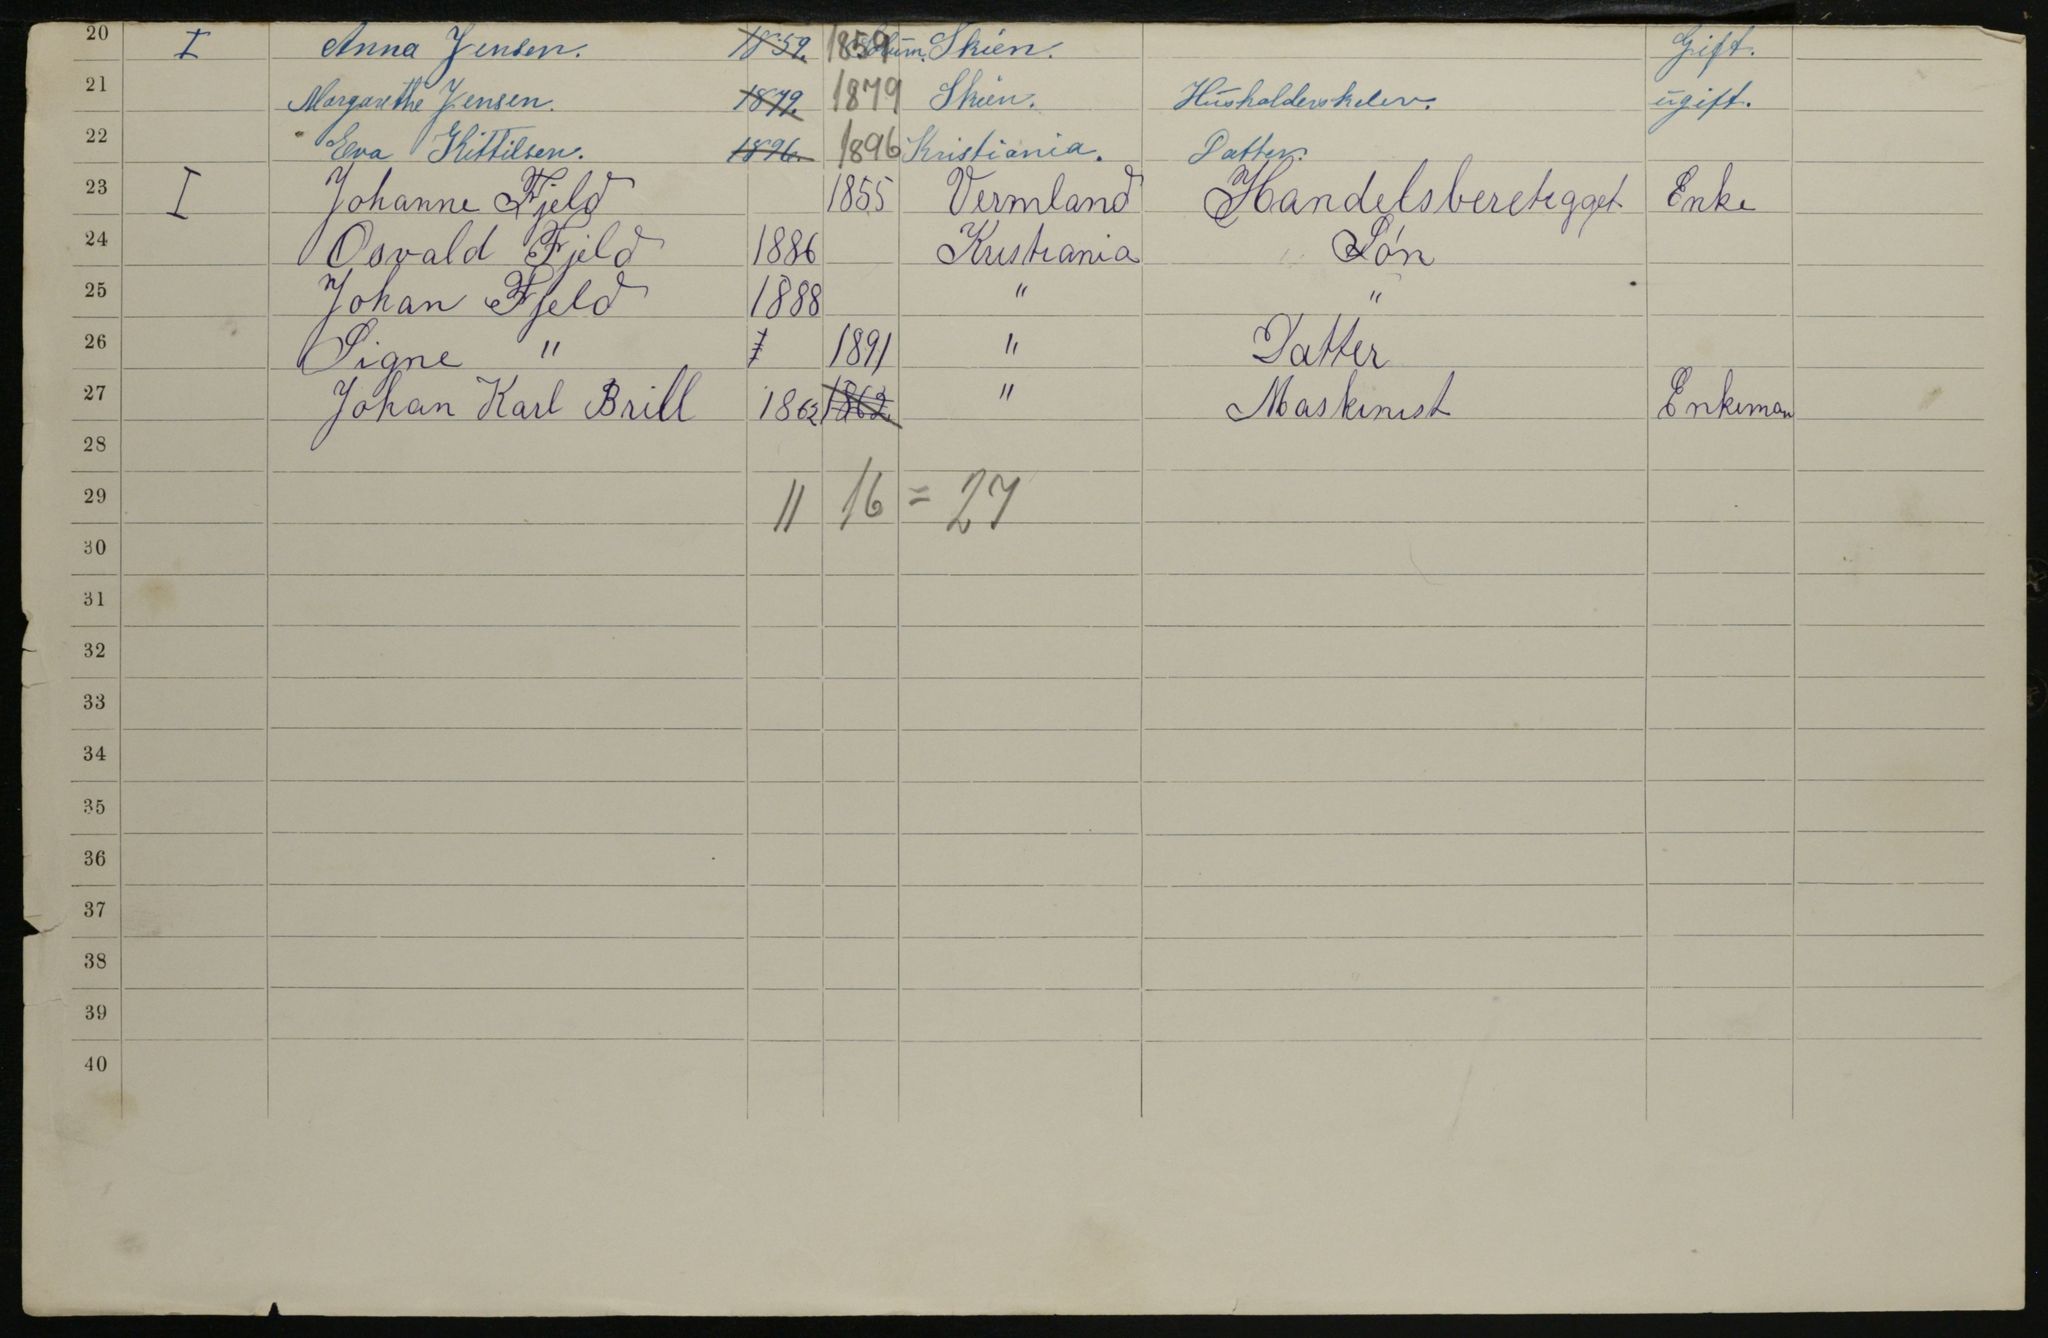 20 I Anna Jensen. 1859. 1859 Skien. Gift.
21 Margarethe Jensen. 1879. 1879 Skien. Husholderskelev. ugift.
22 Eva Kittilsen. 1896. 1896 Kristiania. Datter.
23 I Johanne Fjeld 1855 Vermland Handelsberetigget Enke
24 Osvald Fjeld 1886 Kristiania Søn
25 Johan Fjeld 1888 " "
26 Signe " 1891 " Datter
27 Johan Karl Brill 1862 1862 " Maskinist Enkeman
28
29 11 16 = 27
30
31
32
33
34
35
36
37
38
39
40